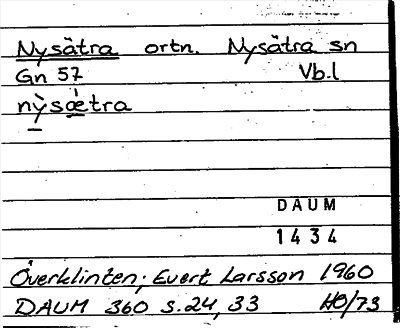 Nysätra ortn. Nysätra sn
Gn 57 Vb.l
nỳsæ̀tra
DAUM
1434
Överklinten; Evert Larsson 1960
DAUM 360 s.24, 33 HO/73